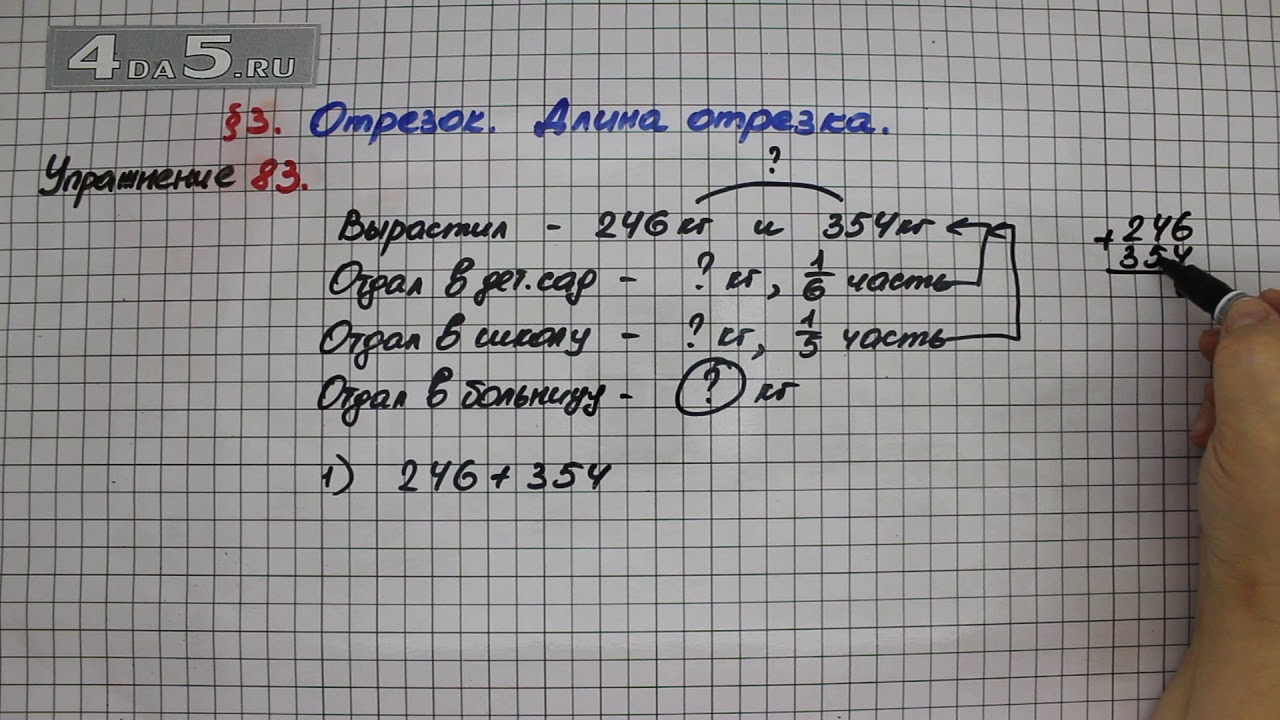 4DA5.RU
§3. Отрезок. Длина отрезка.
Упражнение 83.
?
Вырастил - 246 кг и 354 кг
Отдал в дет. сад - ? кг, 1/6 часть
Отдал в школу - ? кг, 1/5 часть
Отдал в больницу - ? кг
1) 246 + 354
+ 246
354